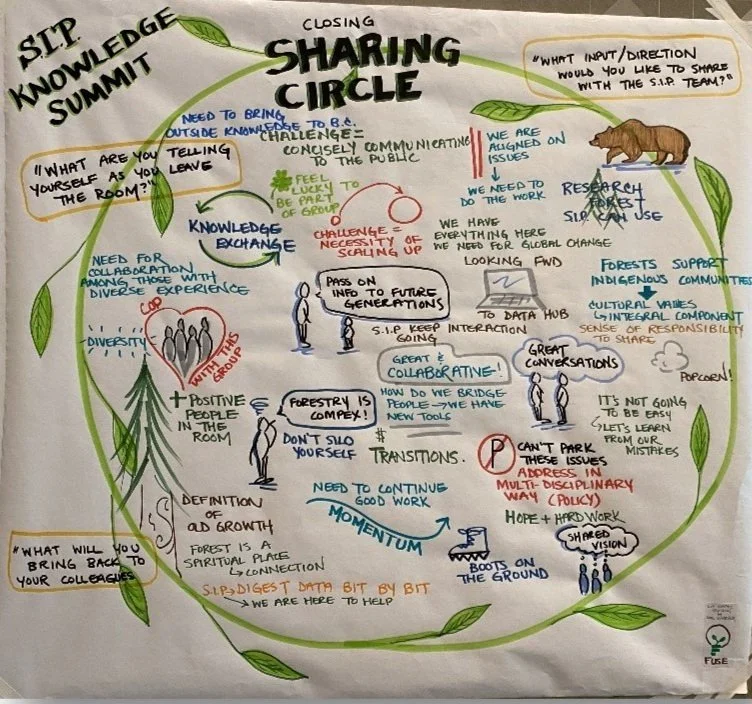 S.I.P.
KNOWLEDGE
SUMMIT
CLOSING
SHARING
CIRCLE
"WHAT INPUT/DIRECTION
WOULD YOU LIKE TO SHARE
WITH THE S.I.P. TEAM?"
"WHAT ARE YOU TELLING
YOURSELF AS YOU LEAVE
THE ROOM?"
NEED TO BRING
OUTSIDE KNOWLEDGE TO B.C.
CHALLENGE=
CONCISELY COMMUNICATING
TO THE PUBLIC
WE ARE
ALIGNED ON
ISSUES
WE NEED TO
DO THE WORK
RESEARCH
FOREST
SIP CAN USE
FEEL
LUCKY TO
BE PART
OF GROUP
KNOWLEDGE
EXCHANGE
CHALLENGE=
NECESSITY OF
SCALING UP
WE HAVE
EVERYTHING HERE
WE NEED FOR GLOBAL CHANGE
NEED FOR
COLLABORATION
AMONG THOSE WITH
DIVERSE EXPERIENCE
PASS ON
INFO TO FUTURE
GENERATIONS
LOOKING FWD
TO DATA HUB
FORESTS SUPPORT
INDIGENOUS COMMUNITIES
CULTURAL VALUES
INTEGRAL COMPONENT
SENSE OF RESPONSIBILITY
TO SHARE
COP
WITH THIS
GROUP
DIVERSITY
S.I.P KEEP INTERACTION
GOING
GREAT &
COLLABORATIVE!
GREAT
CONVERSATIONS
POPCORN!
+ POSITIVE
PEOPLE
IN THE
ROOM
FORESTRY IS
COMPEX!
DON'T SILO
YOURSELF
HOW DO WE BRIDGE
PEOPLE → WE HAVE
NEW TOOLS
IT'S NOT GOING
TO BE EASY
LET'S LEARN
FROM OUR
MISTAKES
# TRANSITIONS.
P
CAN'T PARK
THESE ISSUES
ADDRESS IN
MULTI-DISCIPLINARY
WAY (POLICY)
DEFINITION
OF
OLD GROWTH
NEED TO CONTINUE
GOOD WORK
MOMENTUM
HOPE + HARD WORK
SHARED
VISION
BOOTS ON
THE GROUND
"WHAT WILL YOU
BRING BACK TO
YOUR COLLEAGUES"
FOREST IS A
SPIRITUAL PLACE
CONNECTION
S.I.P→DIGEST DATA BIT BY BIT
WE ARE HERE TO HELP
FUSE